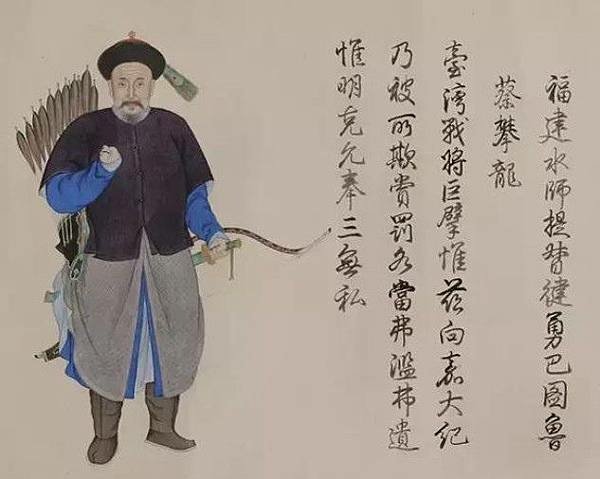 福建水師提督健勇巴圖魯
蔡攀龍
臺湾戰將巨擘惟茲向嘉大紀
乃被所欺賞罰各當弗濫弗遺
惟明克允奉三無私